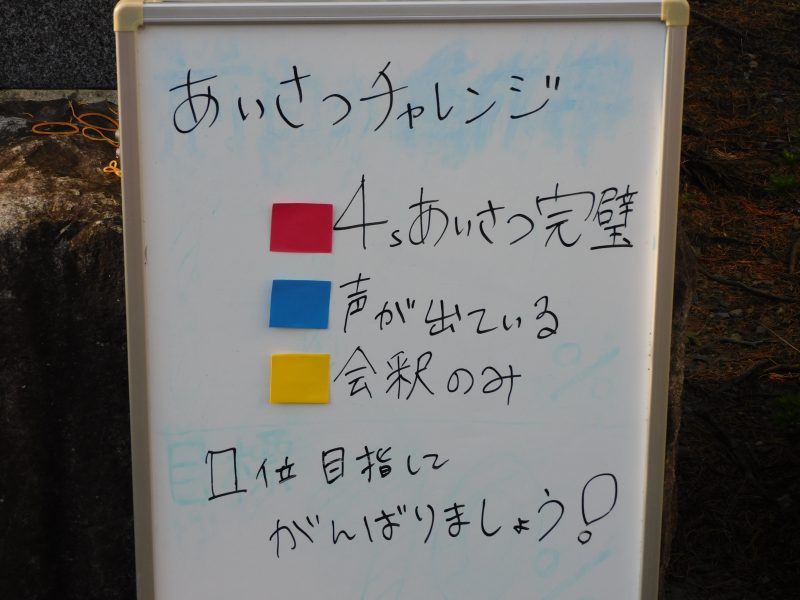 あいさつチャレンジ
4sあいさつ完璧
声が出ている
会釈のみ
1位目指して
がんばりましょう!